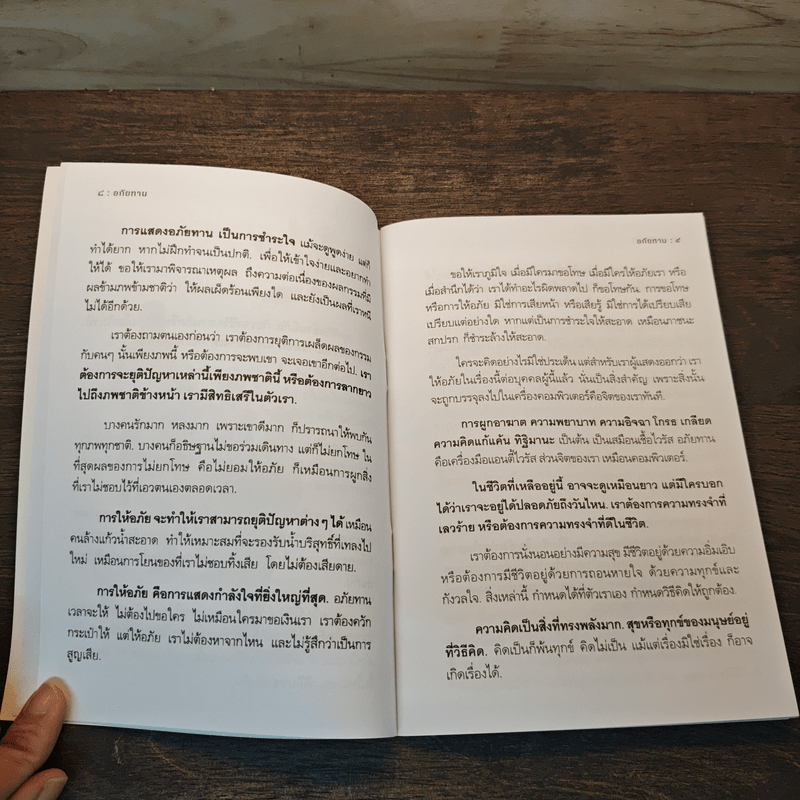 ๘ : อภัยทาน
การแสดงอภัยทาน เป็นการชำระใจ แม้จะดูพูดง่าย แต่ก็
ทำได้ยาก หากไม่ฝึกทำจนเป็นปกติ. เพื่อให้เข้าใจง่ายและอยากทำ
ให้ได้ ขอให้เรามาพิจารณาเหตุผล ถึงความต่อเนื่องของผลกรรมที่มี
ผลข้ามภพข้ามชาติว่า ให้ผลเผ็ดร้อนเพียงใด และยังเป็นผลที่เราหนี
ไม่ได้อีกด้วย.
เราต้องถามตนเองก่อนว่า เราต้องการยุติการเผล็ดผลของกรรม
กับคนๆ นั้นเพียงภพนี้ หรือต้องการจะพบเขา จะเจอเขาอีกต่อไป. เรา
ต้องการจะยุติปัญหาเหล่านี้เพียงภพชาตินี้ หรือต้องการลากยาว
ไปถึงภพชาติข้างหน้า เรามีสิทธิเสรีในตัวเรา.
บางคนรักมาก หลงมาก เพราะเขาดีมาก ก็ปรารถนาให้พบกัน
ทุกภพทุกชาติ. บางคนก็อธิษฐานไม่ขอร่วมเดินทาง แต่ก็ไม่ยกโทษ ใน
ที่สุดผลของการไม่ยกโทษ คือไม่ยอมให้อภัย ก็เหมือนการผูกสิ่ง
ที่เราไม่ชอบไว้ที่เอวตนเองตลอดเวลา.
การให้อภัย จะทำให้เราสามารถยุติปัญหาต่างๆ ได้ เหมือน
คนล้างแก้วน้ำสะอาด ทำให้เหมาะสมที่จะรองรับน้ำบริสุทธิ์ที่เทลงไป
ใหม่ เหมือนการโยนของที่เราไม่ชอบทิ้งเสีย โดยไม่ต้องเสียดาย.
การให้อภัย คือการแสดงกำลังใจที่ยิ่งใหญ่ที่สุด. อภัยทาน
เวลาจะให้ ไม่ต้องไปขอใคร ไม่เหมือนใครมาขอเงินเรา เราต้องควัก
กระเป๋าให้ แต่ให้อภัย เราไม่ต้องหาจากไหน และไม่รู้สึกว่าเป็นการ
สูญเสีย.
อภัยทาน : ๙
ขอให้เราภูมิใจ เมื่อมีใครมาขอโทษ เมื่อมีใครให้อภัยเรา หรือ
เมื่อสำนึกได้ว่า เราได้ทำอะไรผิดพลาดไป ก็ขอโทษกัน. การขอโทษ
หรือการให้อภัย มิใช่การเสียหน้า หรือเสียรู้ มิใช่การได้เปรียบเสีย
เปรียบแต่อย่างใด หากแต่เป็นการชำระใจให้สะอาด เหมือนภาชนะ
สกปรก ก็ชำระล้างให้สะอาด.
ใครจะคิดอย่างไรมิใช่ประเด็น แต่สำหรับเราผู้แสดงออกว่า เรา
ให้อภัยในเรื่องนี้ต่อบุคคลผู้นี้แล้ว นั่นเป็นสิ่งสำคัญ เพราะสิ่งนั้น
จะถูกบรรจุลงไปในเครื่องคอมพิวเตอร์คือจิตของเราทันที.
การผูกอาฆาต ความพยาบาท ความอิจฉา โกรธ เกลียด
ความคิดแก้แค้น ทิฐิมานะ เป็นต้น เป็นเสมือนเชื้อไวรัส อภัยทาน
คือเครื่องมือแอนตี้ไวรัส ส่วนจิตของเรา เหมือนคอมพิวเตอร์.
ในชีวิตที่เหลืออยู่นี้ อาจจะดูเหมือนยาว แต่มีใครบอก
ได้ว่าเราจะอยู่ได้ปลอดภัยถึงวันไหน. เราต้องการความทรงจำที่
เลวร้าย หรือต้องการความทรงจำที่ดีในชีวิต.
เราต้องการนั่งนอนอย่างมีความสุข มีชีวิตอยู่ด้วยความอิ่มเอิบ
หรือต้องการมีชีวิตอยู่ด้วยการถอนหายใจ ด้วยความทุกข์และ
กังวลใจ. สิ่งเหล่านี้ กำหนดได้ที่ตัวเราเอง กำหนดวิธีคิดให้ถูกต้อง.
ความคิดเป็นสิ่งที่ทรงพลังมาก. สุขหรือทุกข์ของมนุษย์อยู่
ที่วิธีคิด. คิดเป็นก็พ้นทุกข์ คิดไม่เป็น แม้แต่เรื่องมิใช่เรื่อง ก็อาจ
เกิดเรื่องได้.